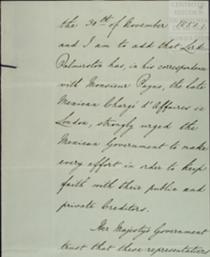 the 30th of November 185
and I am to add that Lord
Palmerston has, in his correspondence
with Monsieur Payno, the late
Mexican Chargé d'Affaires in
London, strongly urged the
Mexican Government to make
every effort in order to keep
faith with their public and
private Creditors.
Her Majesty's Government
trust that these representations